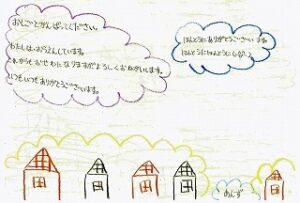 おしごとがんばってください。
わたしは、おうえんしています。
これからもおせわになりますがよろしくおねがいします。
いつもいつもありがとうございます。
ほんとうにありがとうございます。
ほんとうにほんとうに